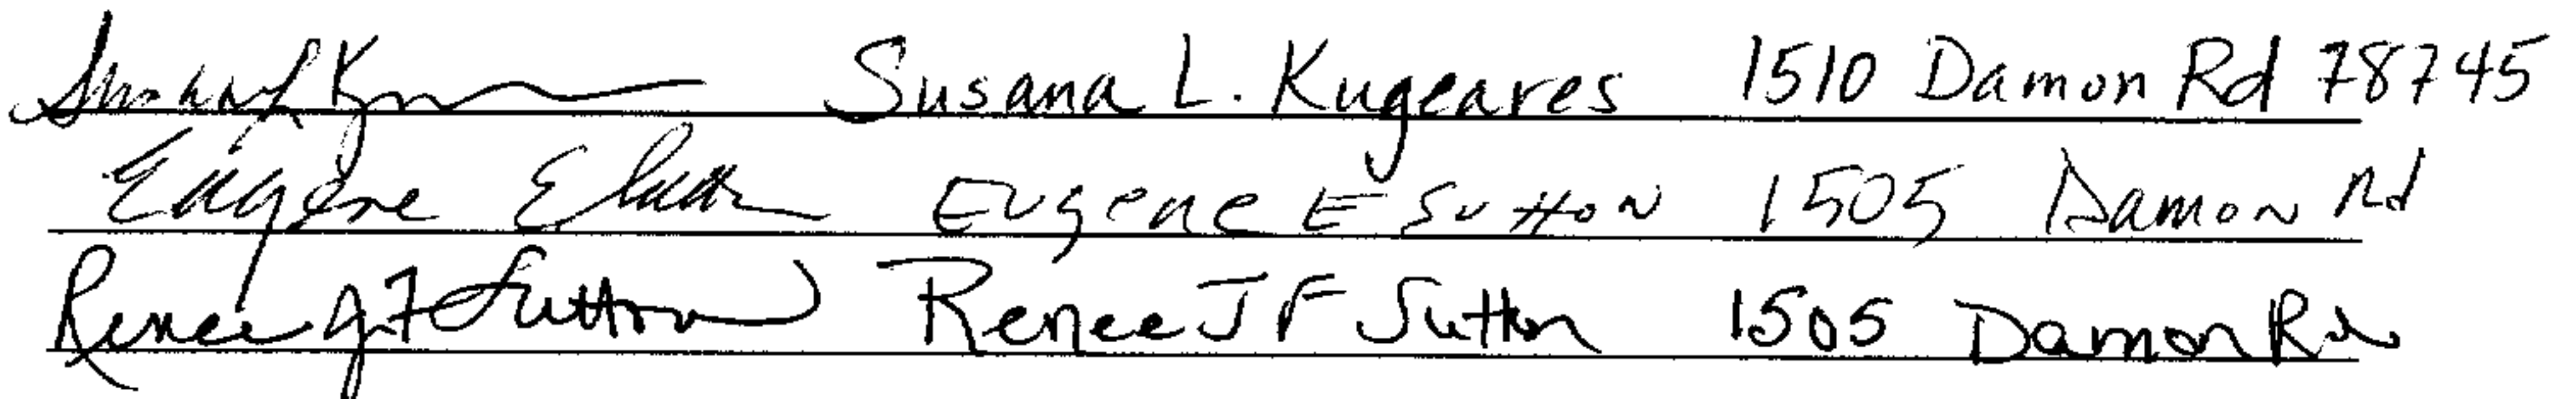 Susana L. Kugeares 1510 Damon Rd 78745
Eugene E Sutton EUgene E SuttoN 1505 Damon Rd
Renee J F Sutton Renee J F Sutton 1505 Damon Rd